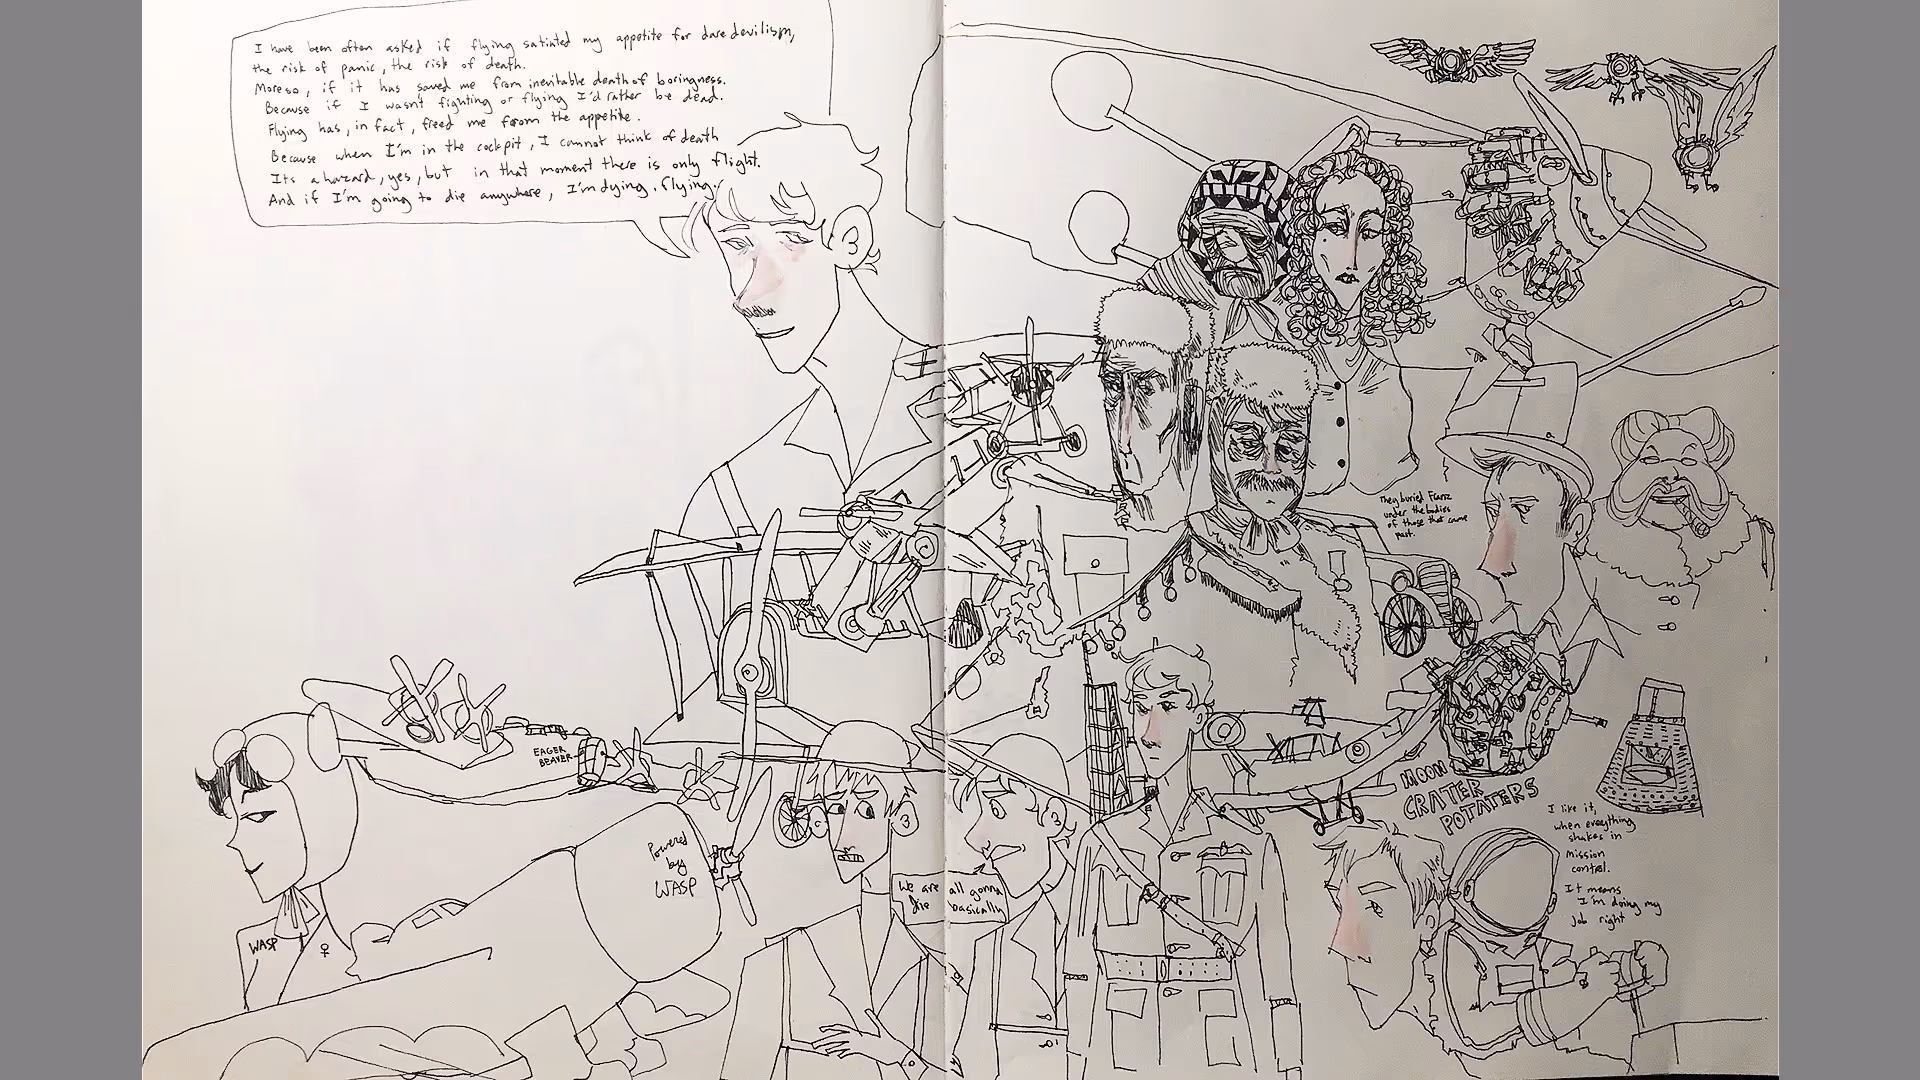 I have been often asked if flying satiated my appetite for daredevilism,
the risk of panic, the risk of death.
Moreso, if it has saved me from inevitable death of boringness.
Because if I wasn't fighting or flying I'd rather be dead.
Flying has, in fact, freed me from the appetite.
Because when I'm in the cockpit, I cannot think of death
Its a hazard, yes, but in that moment there is only flight.
And if I'm going to die anywhere, I'm dying. flying.
They buried Franz
under the bodies
of those that came
past.
EAGER
BEAVER
Powered
by
WASP
WASP
We are all gonna
die basically
MOON
CRATER
POTATERS
I like it,
when everything
shakes in
mission
control.
It means
I'm doing my
job right